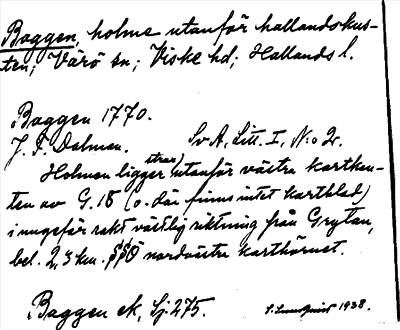 Baggen, holme utanför hallandskus-
ten; Värö sn; Viske hd; Hallands l.
Baggen 1770.
J. F. Dalman. Sv A, Litt. I, N:o 2.
Holmen ligger strax utanför västra kartkan-
ten av G. 18 (o. där finns intet kartblad)
i ungefär rakt västlig riktning från Grytan,
bel. 2,3 km. SSÖ nordvästra karthörnet.
Baggen ek, Sj. 275. S. Lundquist 1938.